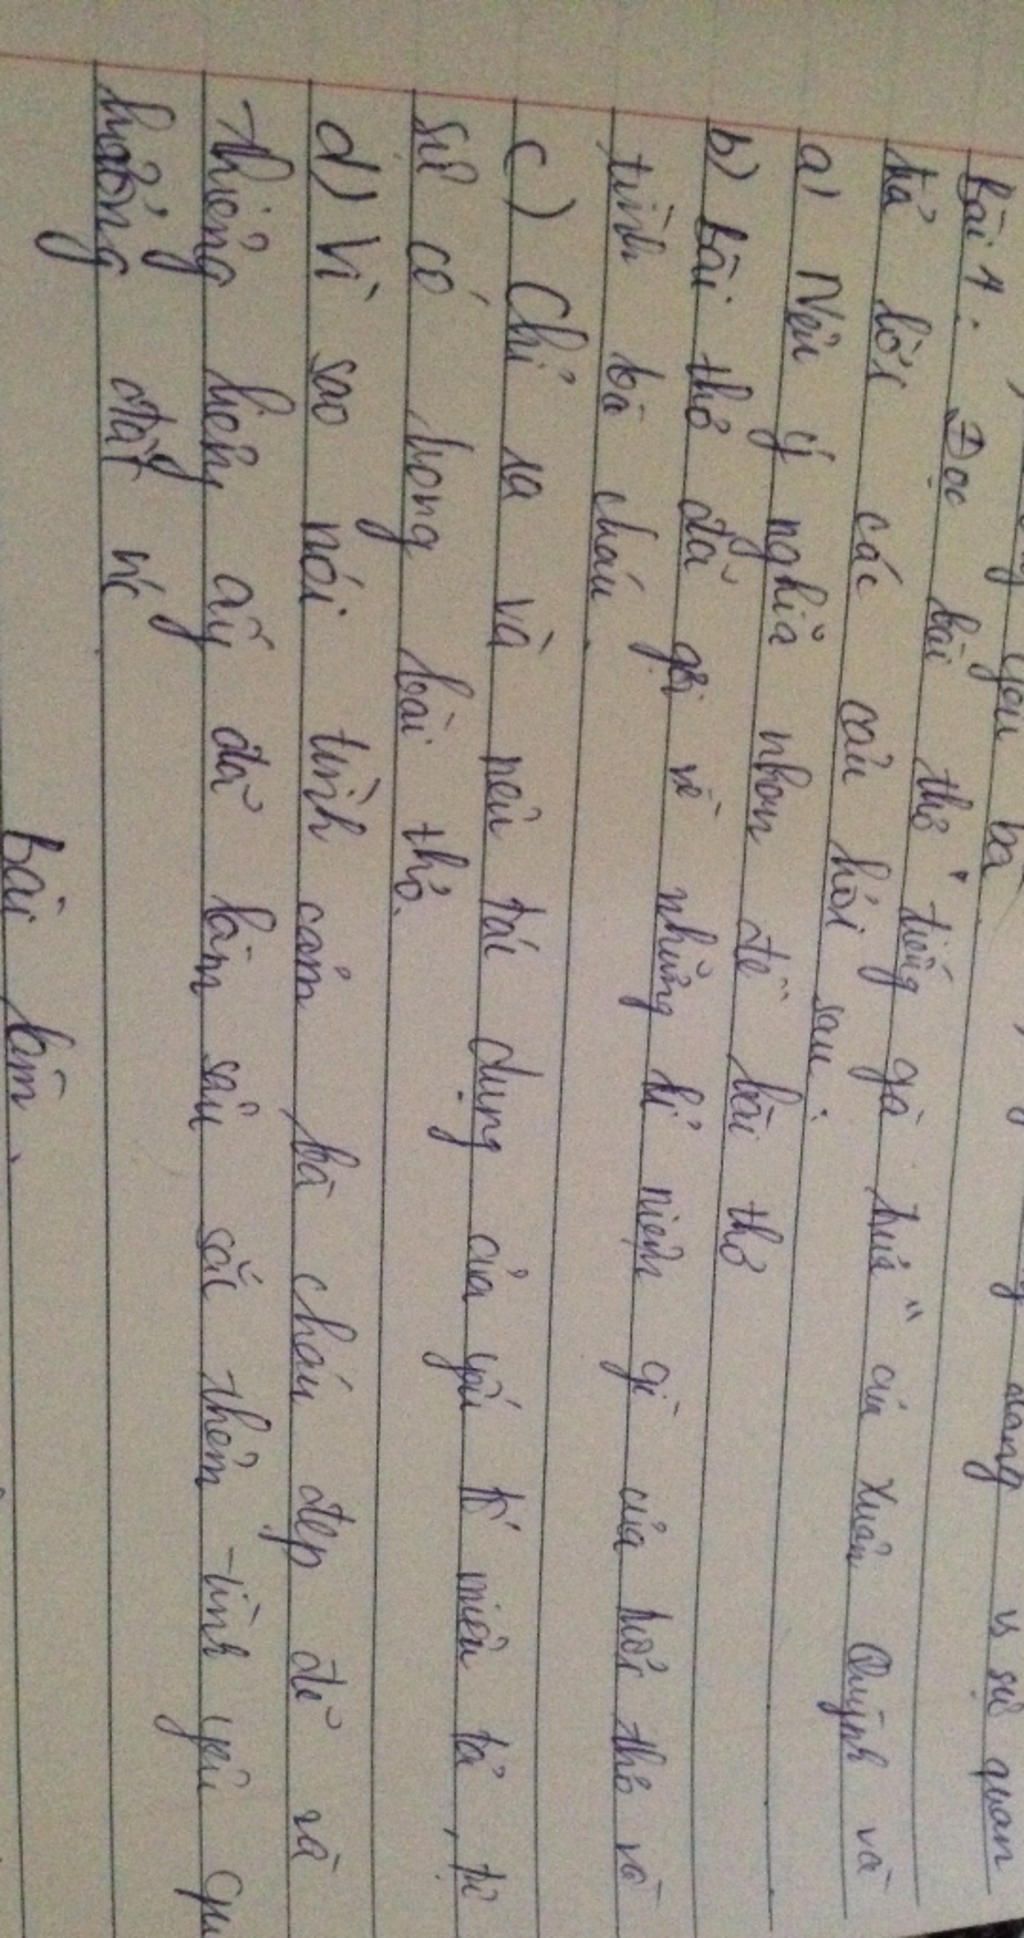 yêu bà dang v sự quan
Bài 4: Đọc bài thơ "tiếng gà trưa" của Xuân Quỳnh và
trả lời các câu hỏi sau:
a) Nêu ý nghĩa nhan đề bài thơ
b) bài thơ đã gợi về những kỉ niệm gì của tuổi thơ và
tình bà cháu.
c) Chỉ ra và nêu tác dụng của yếu tố miêu tả, tự
sự có trong bài thơ.
d) Vì sao nói tình cảm bà cháu đẹp đẽ và
thiêng liêng ấy đã làm sâu sắc thêm tình yêu
hương đất nc.
bài làm.